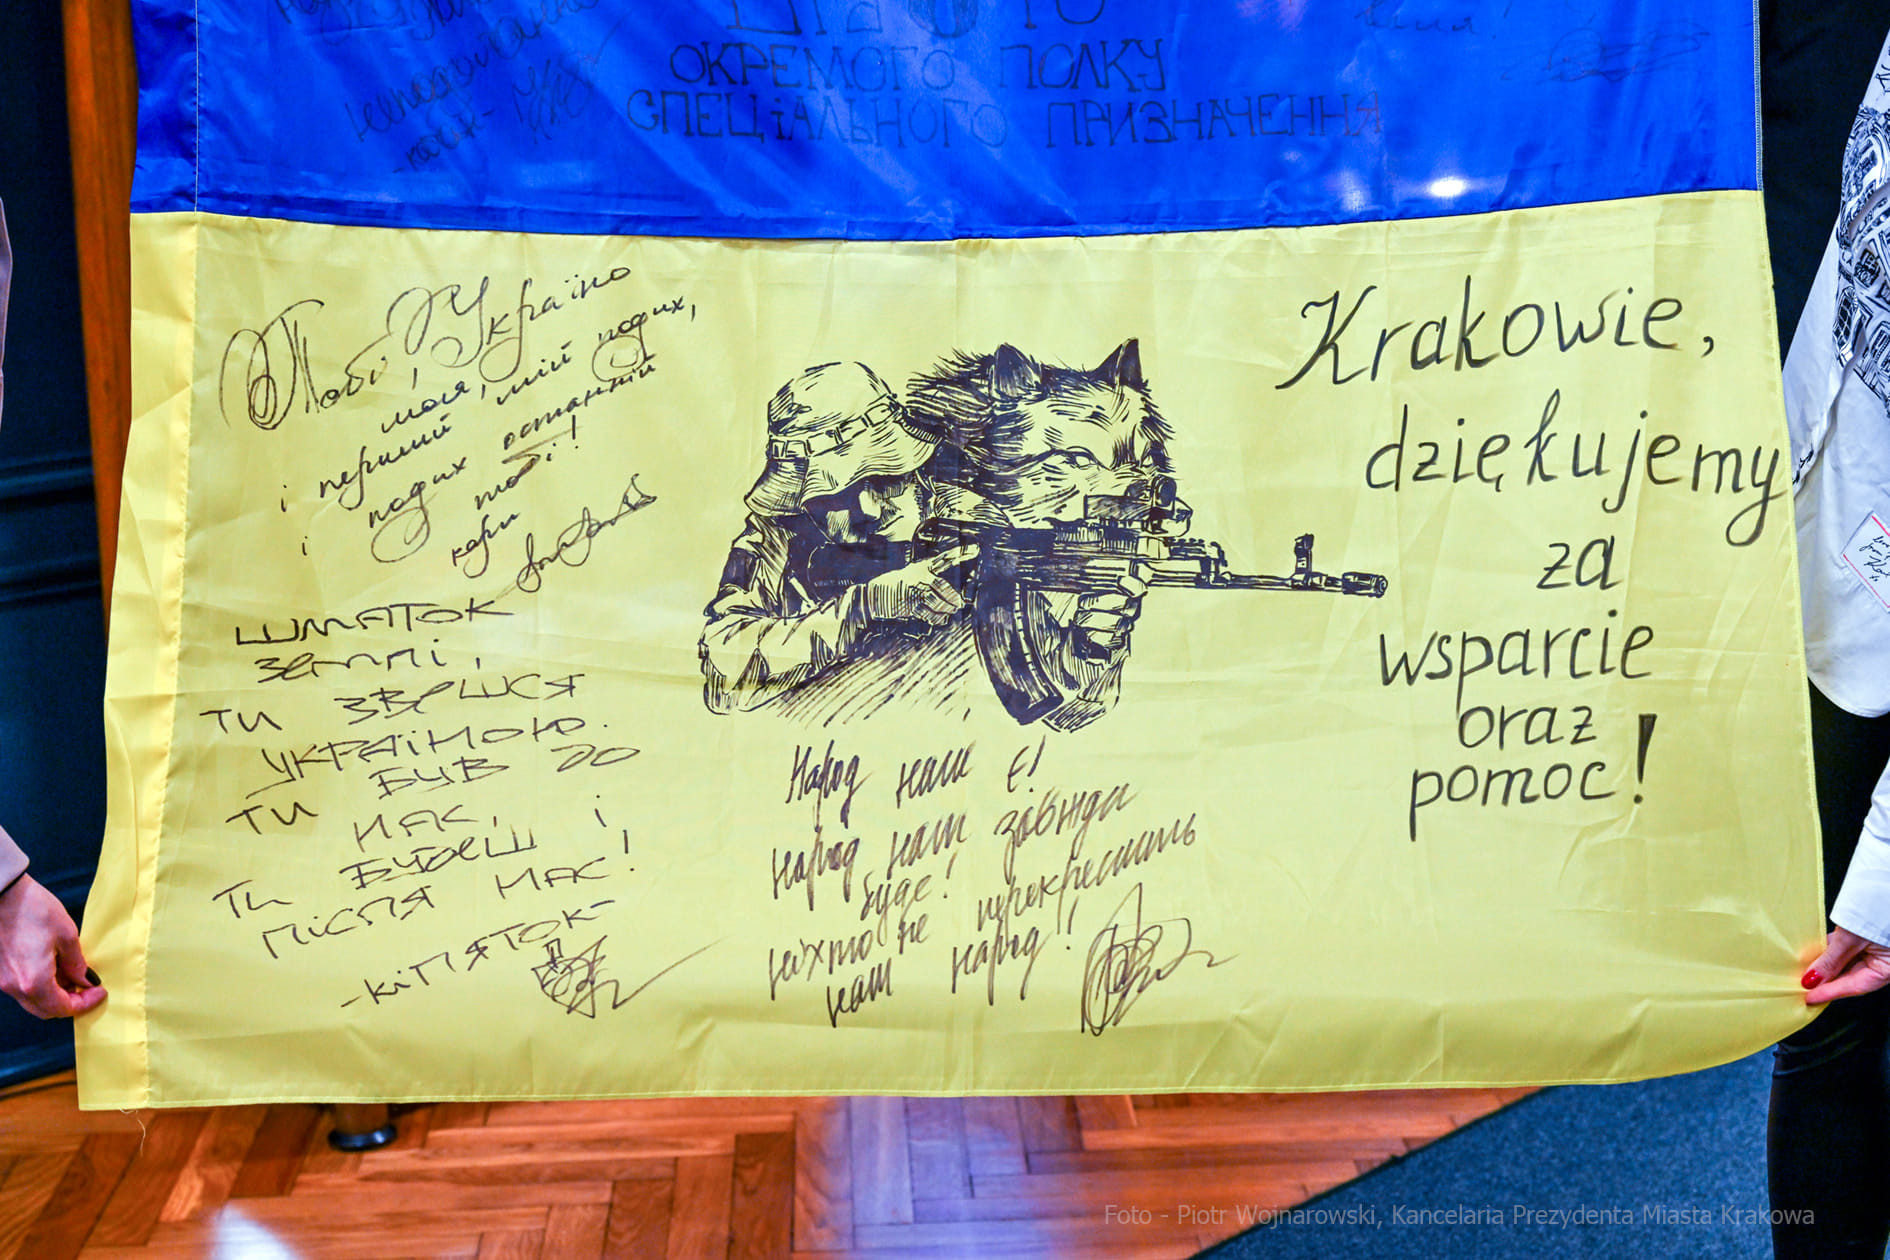 ОКРЕМОГО ПОЛКУ
СПЕЦіАЛЬНОГО ПРИЗНАЧЕННЯ
Тобі, Україно
моя,
і перший мій подих,
і подих останній
тобі!
ШМАТОК
ЗЕМЛі,
ТИ ЗВЕШСЯ
УКРАїНОЮ.
ТИ БУВ ДО
НАС,
ТИ БУДЕШ і
ПіСЛЯ НАС!
-КіПЯТОК-
Народ наш є!
Народ наш завжди
буде!
Ніхто не перекреслить
наш народ!
Krakowie,
dziękujemy
za
wsparcie
oraz
pomoc!
Foto - Piotr Wojnarowski, Kancelaria Prezydenta Miasta Krakowa